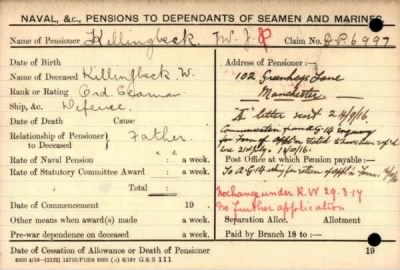 NAVAL, &c., PENSIONS TO DEPENDANTS OF SEAMEN AND MARINES
Name of Pensioner Killingbeck. W. J. Claim No. 6997
Date of Birth
Name of Deceased Killingbeck W.
Rank or Rating Ord Seaman
Ship, &c. Defence.
Date of Death Cause
Relationship of Pensioner to Deceased } Father.
Rate of Naval Pension a week.
Rate of Statutory Committee Award a week.
Total a week.
Date of Commencement 19
Other means when award made a week.
Pre-war dependence on deceased a week.
Address of Pensioner:—
102 Greenheys Lane
Manchester.
"A" letter sent 24/9/16.
Communication from A.G. 14 enquiry
for Form of appln
Post Office at which Pension payable:—
To A.G. 14 for return of appln Form.
No change under R.W 29.3.17
No further application
Separation Allce. Allotment
Paid by Branch 18 to:—
Date of Cessation of Allowance or Death of Pensioner 19
G & S 111